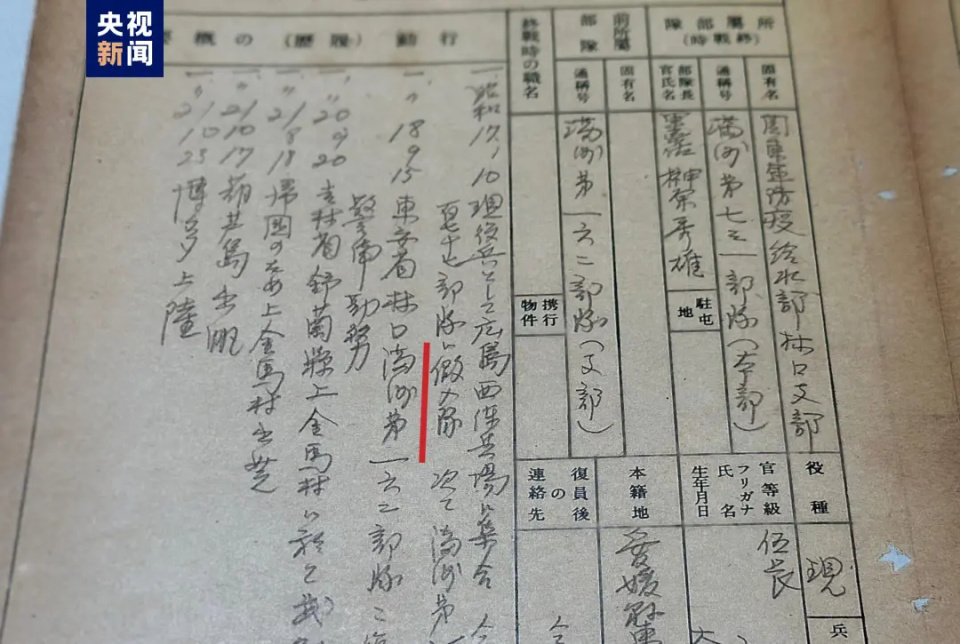 央视
新闻
所屬部隊
(終戰時)
固有名
関東軍防疫給水部林口支部
通稱号
満洲第七三一部隊(本部)
部隊長
官氏名
軍医少佐 榊原秀雄
駐屯
地
前所屬
部隊
固有名
通稱号
満洲第一六二部隊(支部)
終戰時の職名
携行
物件
役種
現
兵
官等級
伍長
フリガナ
氏名
生年月日
本籍地
愛媛縣
復員後
の
連絡先
行動(履歴)の概要
一、昭和17、1、10 現役兵として広島西練兵場に集合
部隊に仮入隊 次で満洲第
一、〃 18 9 15 東安省林口満洲第一六二部隊
警備勤務
一、〃 20 9 20 吉林省舒蘭縣上金馬村に於て
一、〃 21 8 18 帰国のため上金馬村出発
一、〃 21 10 17 葫芦島出帆
一、〃 21 10 23 博多上陸